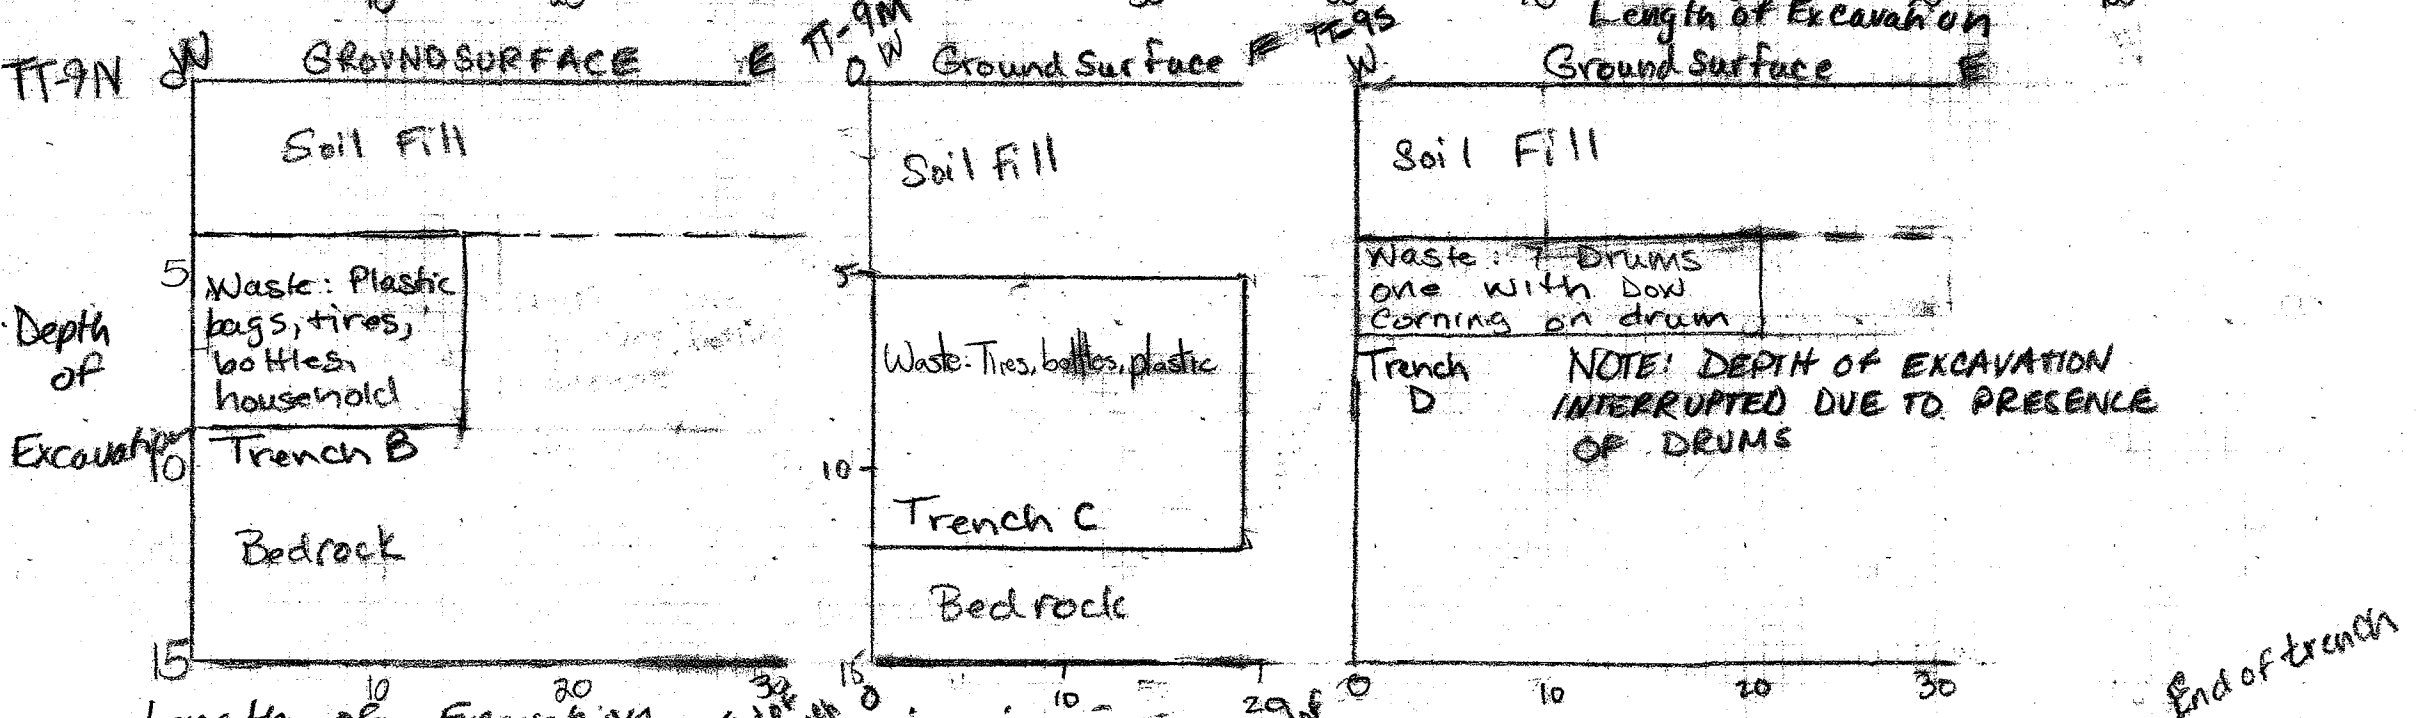 Length of Excavation
TT-9N
W
0
GROUNDSURFACE
E
Soil Fill
5
Waste: Plastic
bags, tires,
bottles,
household
Trench B
10
Bedrock
15
10
20
30
Depth
of
Excavation
Length of Excavation
TT-9M
0
W
Ground Surface
E
Soil Fill
5
Waste: Tires, bottles, plastic
10
Trench C
Bedrock
15
0
10
20
TT-9S
W
Ground Surface
E
Soil Fill
Waste: 7 Drums
one with Dow
Corning on drum
Trench
D
NOTE! DEPTH OF EXCAVATION
INTERRUPTED DUE TO PRESENCE
OF DRUMS
0
10
20
30
End of trench